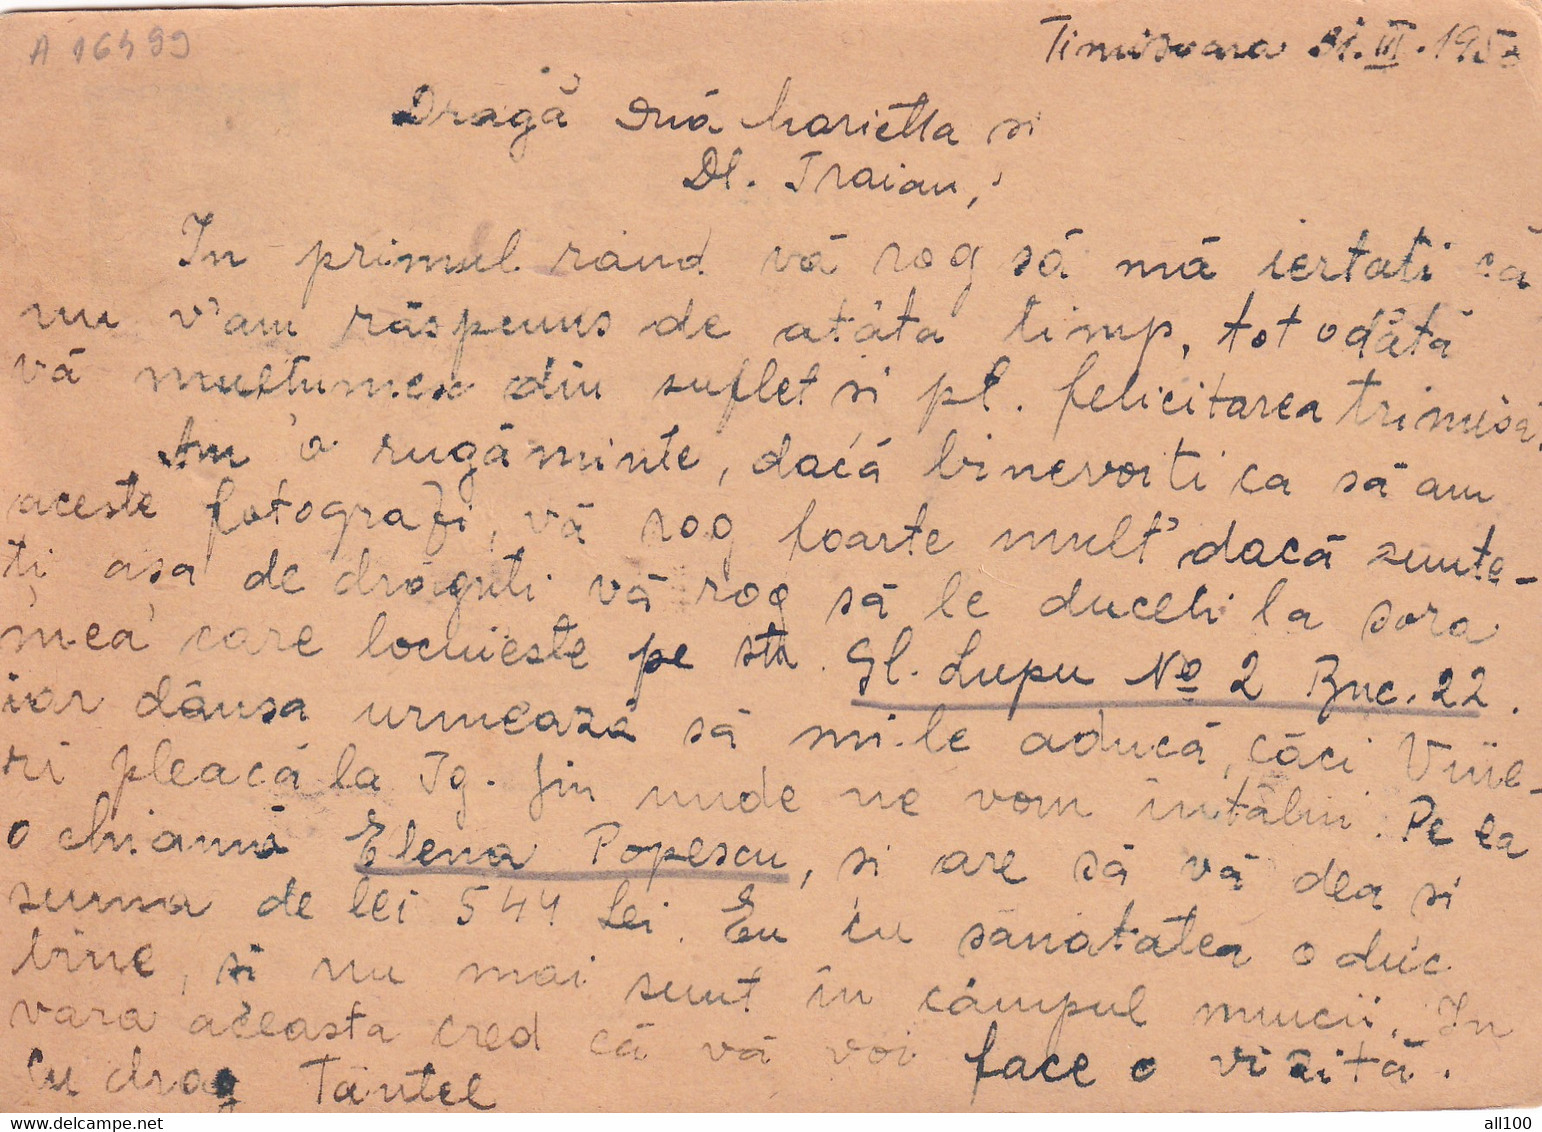 A 16499
Timisoara 31.III.1953
Dragă Marietta si
Dl. Traian,
In primul rând vă rog să mă iertati că
nu v'am răspuns de atâta timp, tot odâtă
vă multumesc din suflet și pt. felicitarea trimisă.
Am o rugăminte, dacă binevoiti ca să am
aceste fotografi, vă rog foarte mult dacă sunte-
ți așa de drăguti vă rog să le duceti la sora
mea care locuieste pe str. Gl. Lupu No 2 Buc. 22.
iar dânsa urmează să mi-le aducă, căci Vine-
ri pleacă la Tg. Jiu unde ne vom întâlni. Pe ea
o chiamă Elena Popescu, si are să vă dea si
suma de lei 544 Lei. Eu cu sănătatea o duc
bine, si nu mai sunt în câmpul muncii. In
vara aceasta cred că vă voi face o vizită.
Cu drag Tântel
www.delcampe.net
all100